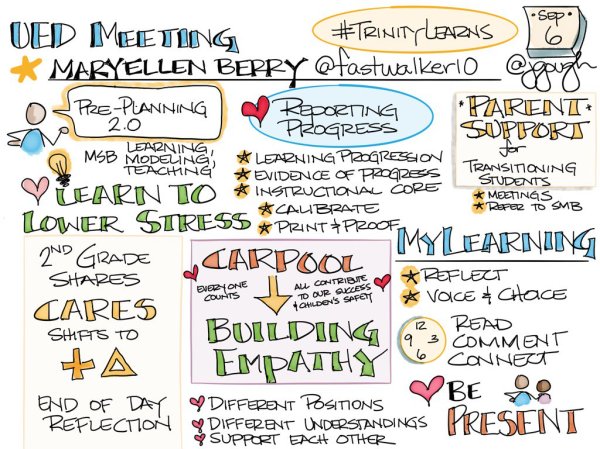 UED MEETING
#TRINITYLEARNS
SEP
6
MARYELLEN BERRY @fastwalker10
@jgough
PRE-PLANNING
2.0
MSB LEARNING,
MODELING,
TEACHING
LEARN TO
LOWER STRESS
REPORTING
PROGRESS
LEARNING PROGRESSION
EVIDENCE OF PROGRESS
INSTRUCTIONAL CORE
CALIBRATE
PRINT & PROOF
PARENT
SUPPORT
for
TRANSITIONING
STUDENTS
MEETINGS
REFER TO SMB
2ND GRADE
SHARES
CARES
SHIFTS TO
+ Δ
END OF DAY
REFLECTION
CARPOOL
EVERYONE
COUNTS
ALL CONTRIBUTE
TO OUR SUCCESS
& CHILDEN'S SAFETY
BUILDING
EMPATHY
DIFFERENT POSITIONS
DIFFERENT UNDERSTANDINGS
SUPPORT EACH OTHER
MYLEARNING
REFLECT
VOICE & CHOICE
12
9 3
6
READ
COMMENT
CONNECT
BE
PRESENT